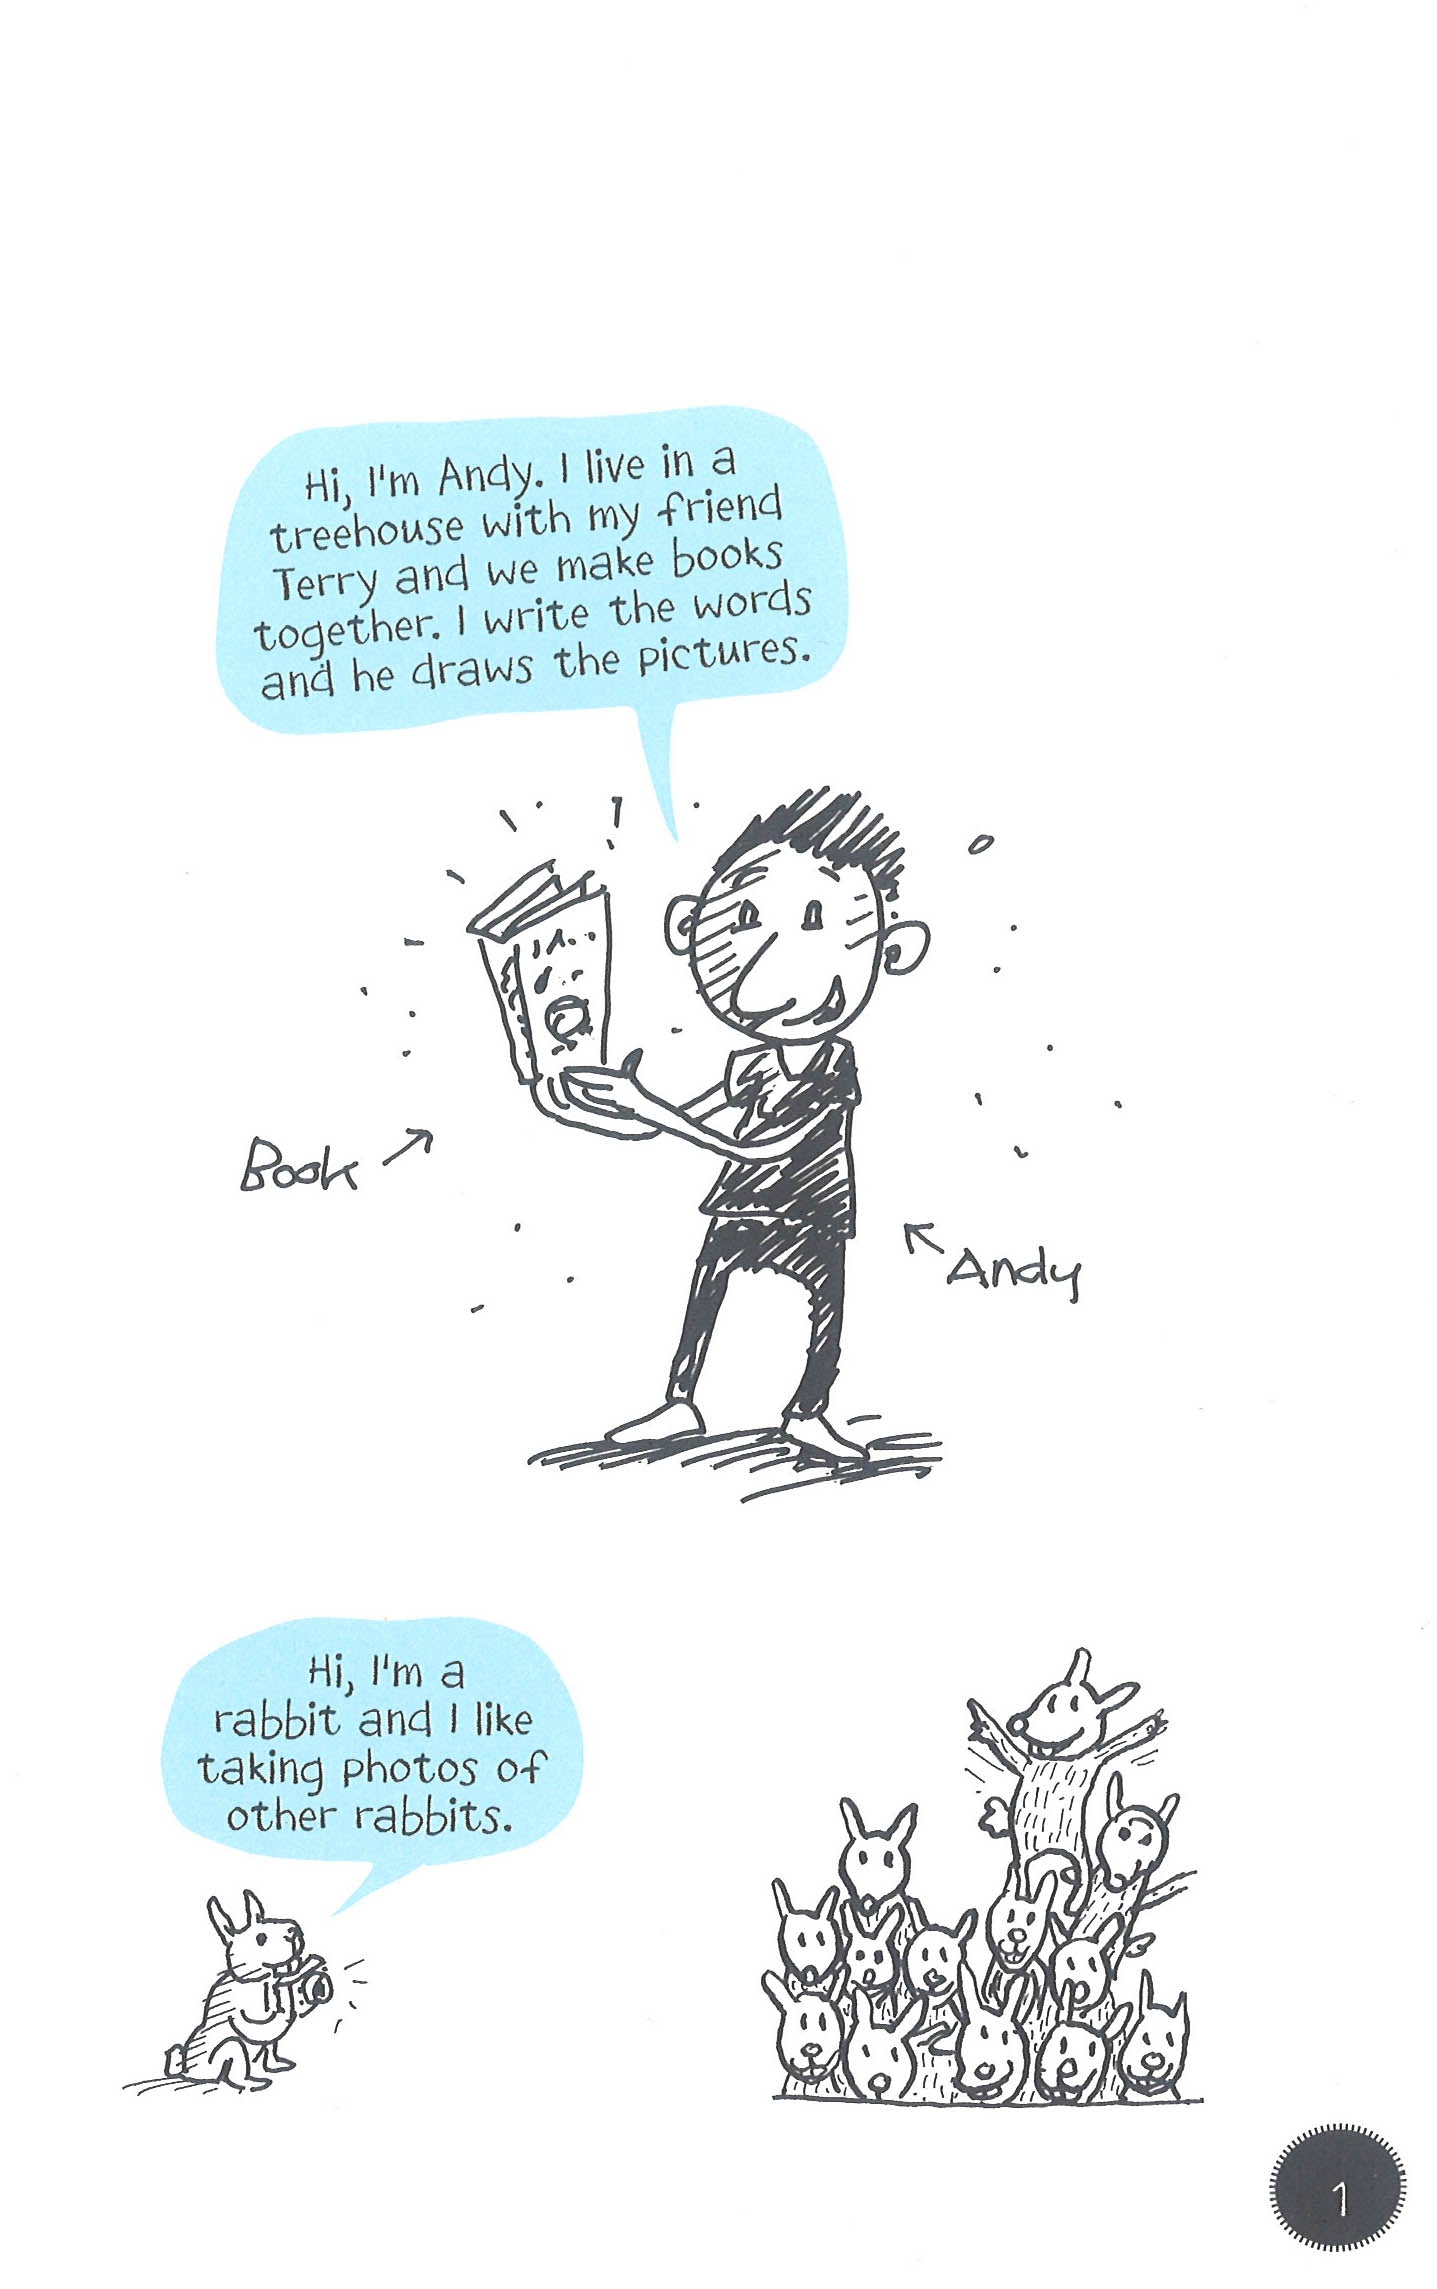 Hi, I'm Andy. I live in a
treehouse with my friend
Terry and we make books
together. I write the words
and he draws the pictures.
Book
Andy
Hi, I'm a
rabbit and I like
taking photos of
other rabbits.
1